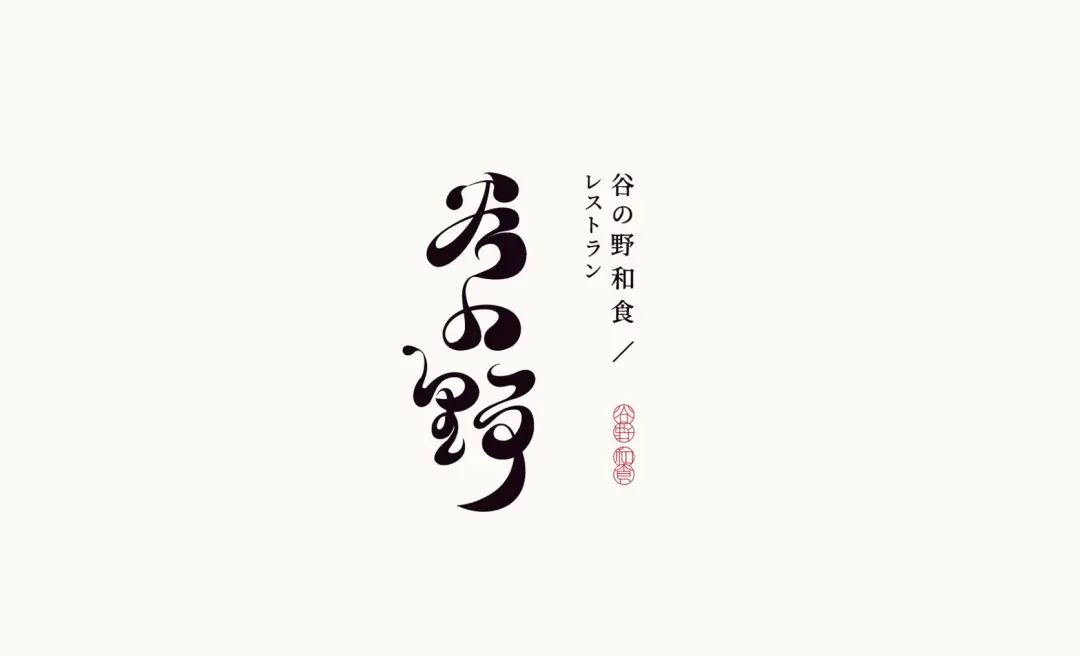 谷の野和食／
レストラン
谷の野
谷野
和食